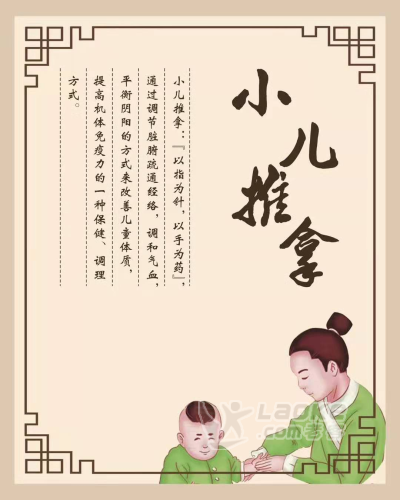 小儿推拿
小儿推拿：『以指为针，以手为药』，
通过调节脏腑疏通经络，调和气血，
平衡阴阳的方式来改善儿童体质，
提高机体免疫力的一种保健、调理
方式。
Laoke
.com老客